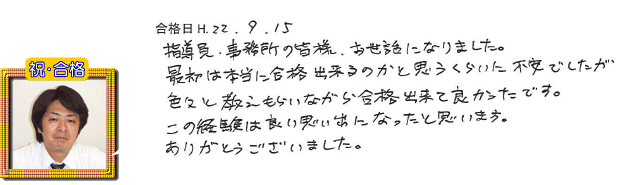 合格日 H.22.9.15
祝・合格
指導員、事務所の皆様、お世話になりました。
最初は本当に合格出来るのかと思うくらいに不安でしたが
色々と教えもらいながら合格出来て良かったです。
この経験は良い思い出になったと思います。
ありがとうございました。